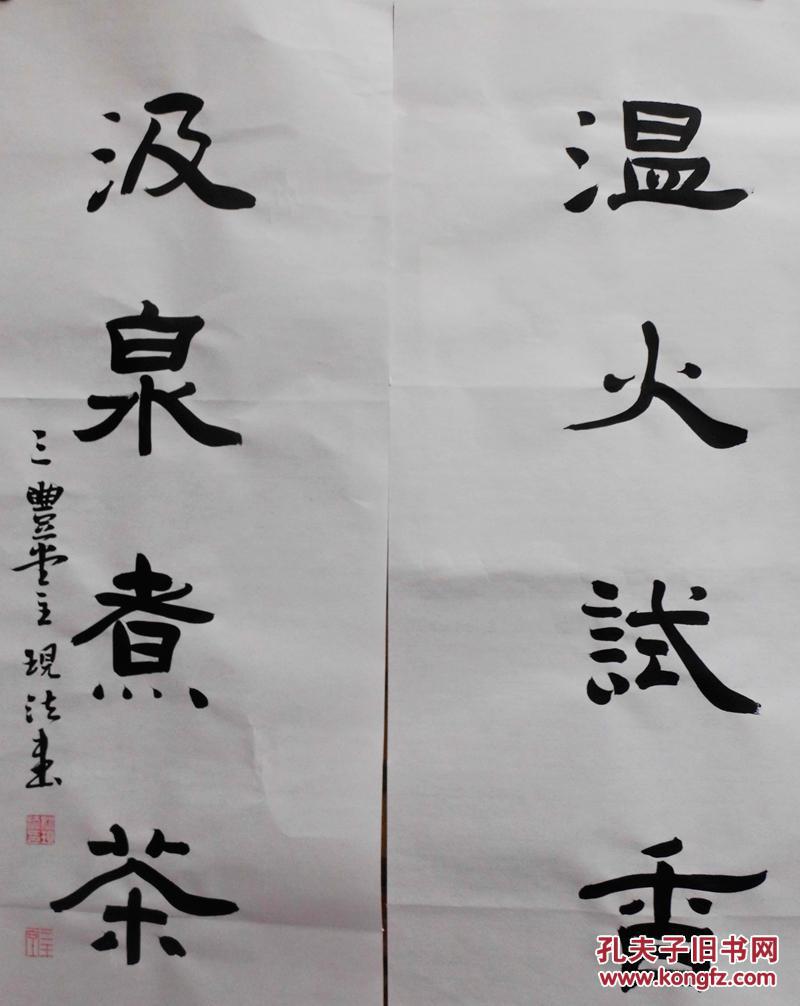 温火試香
汲泉煮茶
三豐堂主現法書
孔夫子旧书网
www.kongfz.com